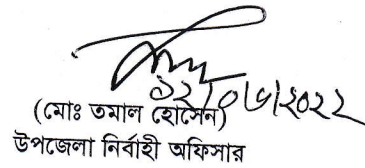 ১২/০৬/২০২২
(মোঃ তমাল হোসেন)
উপজেলা নির্বাহী অফিসার